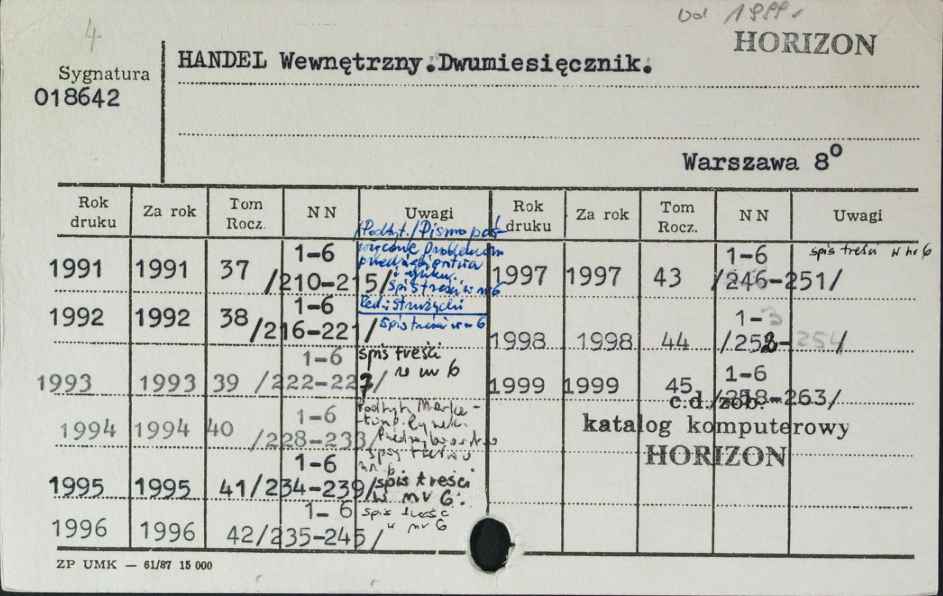 4
od 1999r
HORIZON
HANDEL Wewnętrzny.Dwumiesięcznik.
Sygnatura
018642
Warszawa 8°
Rok druku Za rok Tom Rocz. NN Uwagi Rok druku Za rok Tom Rocz. NN Uwagi
/Podtyt./Pismo poś-
więcone problemom
przedsiębiorstwa
i rynku.
1991 1991 37 1-6 /210-215/ spis treści w nr 6
Red.: Strużycki
1992 1992 38 1-6 /216-221/ spis treści w nr 6
1993 1993 39 1-6 /222-227/ spis treści w nr 6
Podtyt. Marke-
ting. Rynek.
Przedsiębiorstwo
1994 1994 40 1-6 /228-233/ spis treści w nr 6
1995 1995 41 1-6 /234-239/ spis treści w nr 6.
1996 1996 42 1-6 /235-245/ spis treści w nr 6
1997 1997 43 1-6 /246-251/ spis treści w nr 6
1998 1998 44 1-3 /252-254/
1999 1999 45 1-6 /258-263/
c.d. zob.
katalog komputerowy
HORIZON
ZP UMK — 61/87 15 000